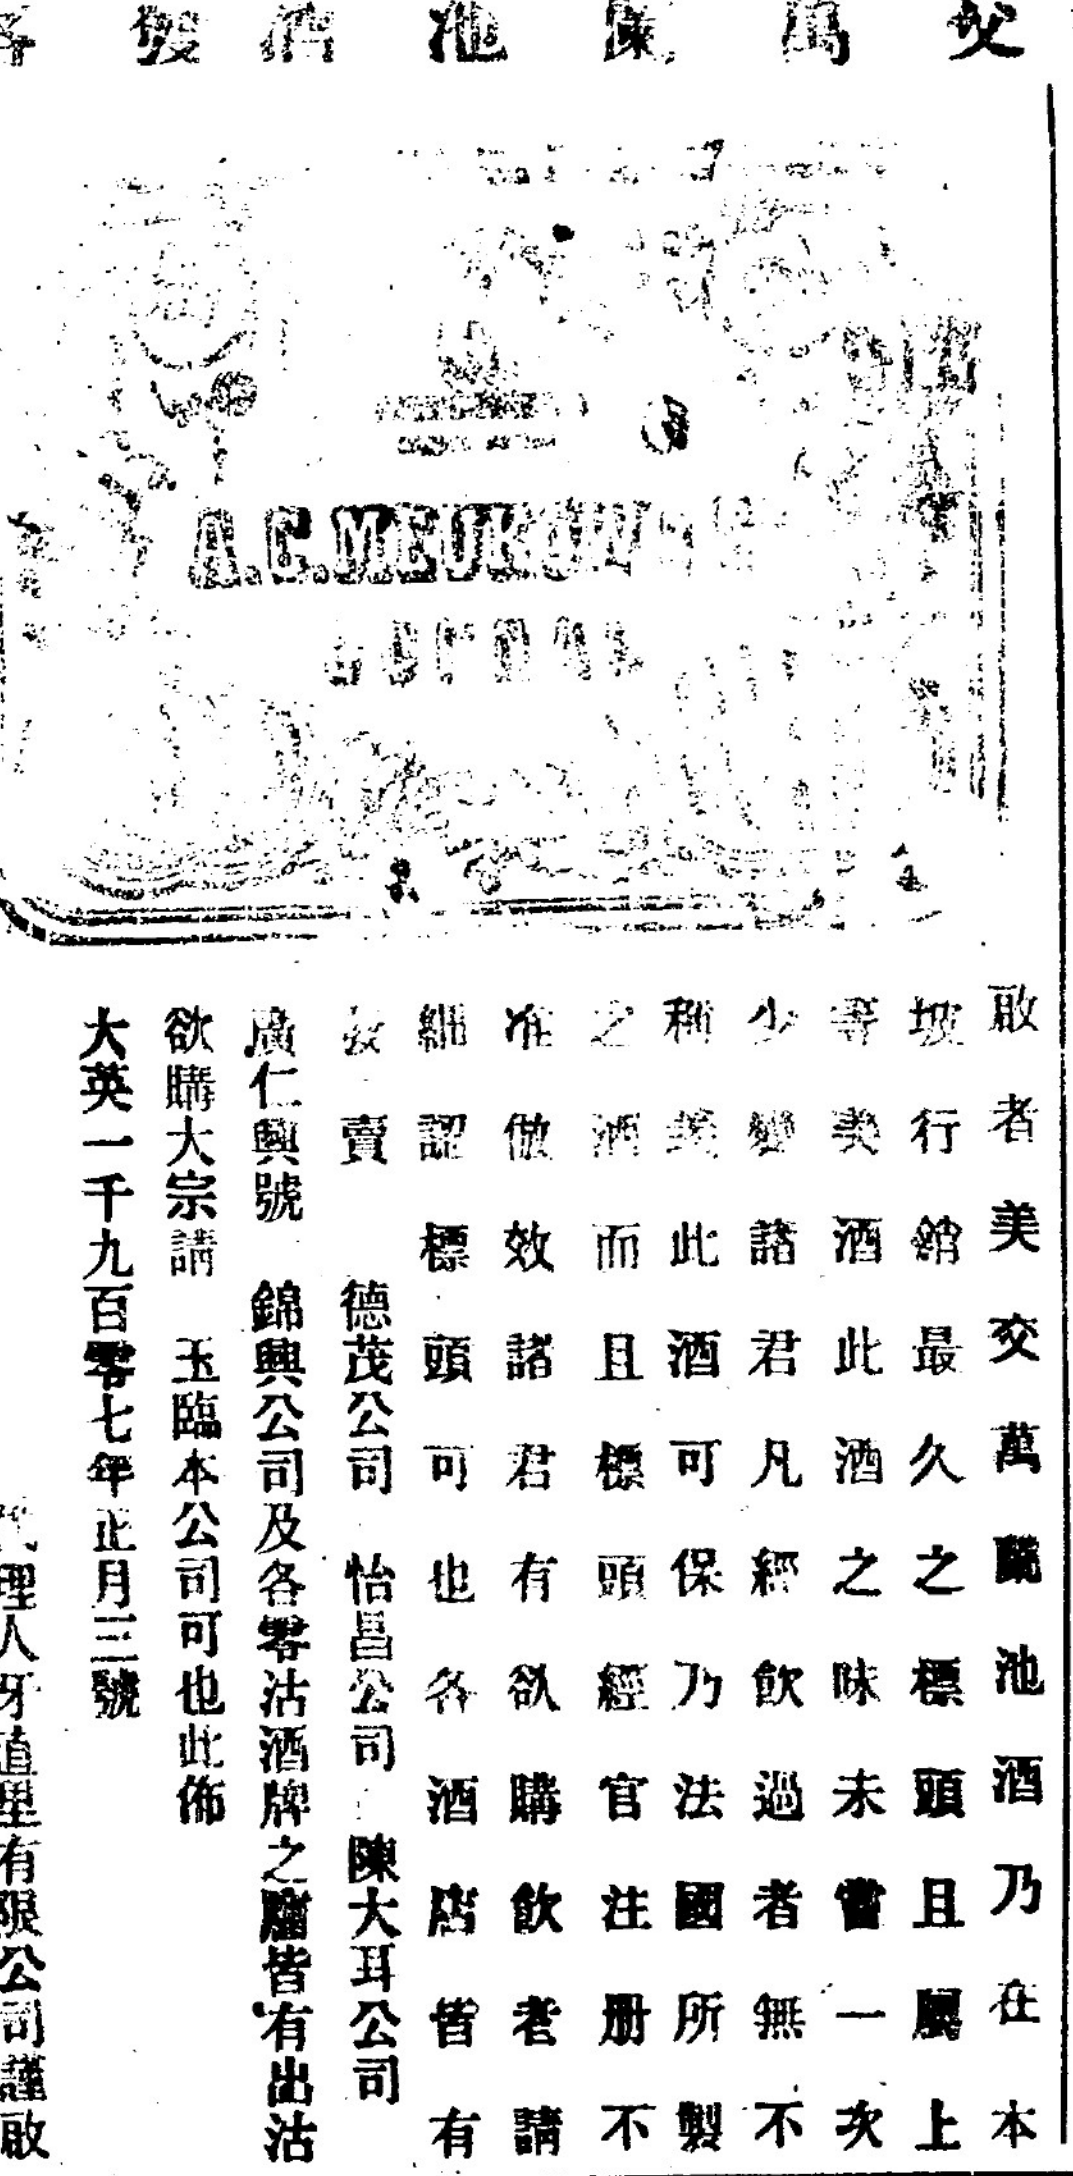 交萬蘭池酒發客
A.C.MEUKOW
啟者美交萬蘭池酒乃在本
坡行銷最久之標頭且屬上
等美酒此酒之味未嘗一次
少變諸君凡經飲過者無不
稱美此酒可保乃法國所製
之酒而且標頭經官注册不
准倣效諸君有欲購飲者請
細認標頭可也各酒店皆有
發賣 德茂公司 怡昌公司 陳大耳公司
廣仁興號 錦興公司及各零沽酒牌之廛皆有出沽
欲購大宗請 玉臨本公司可也此佈
大英一千九百零七年正月三號
代理人牙直里有限公司謹啟